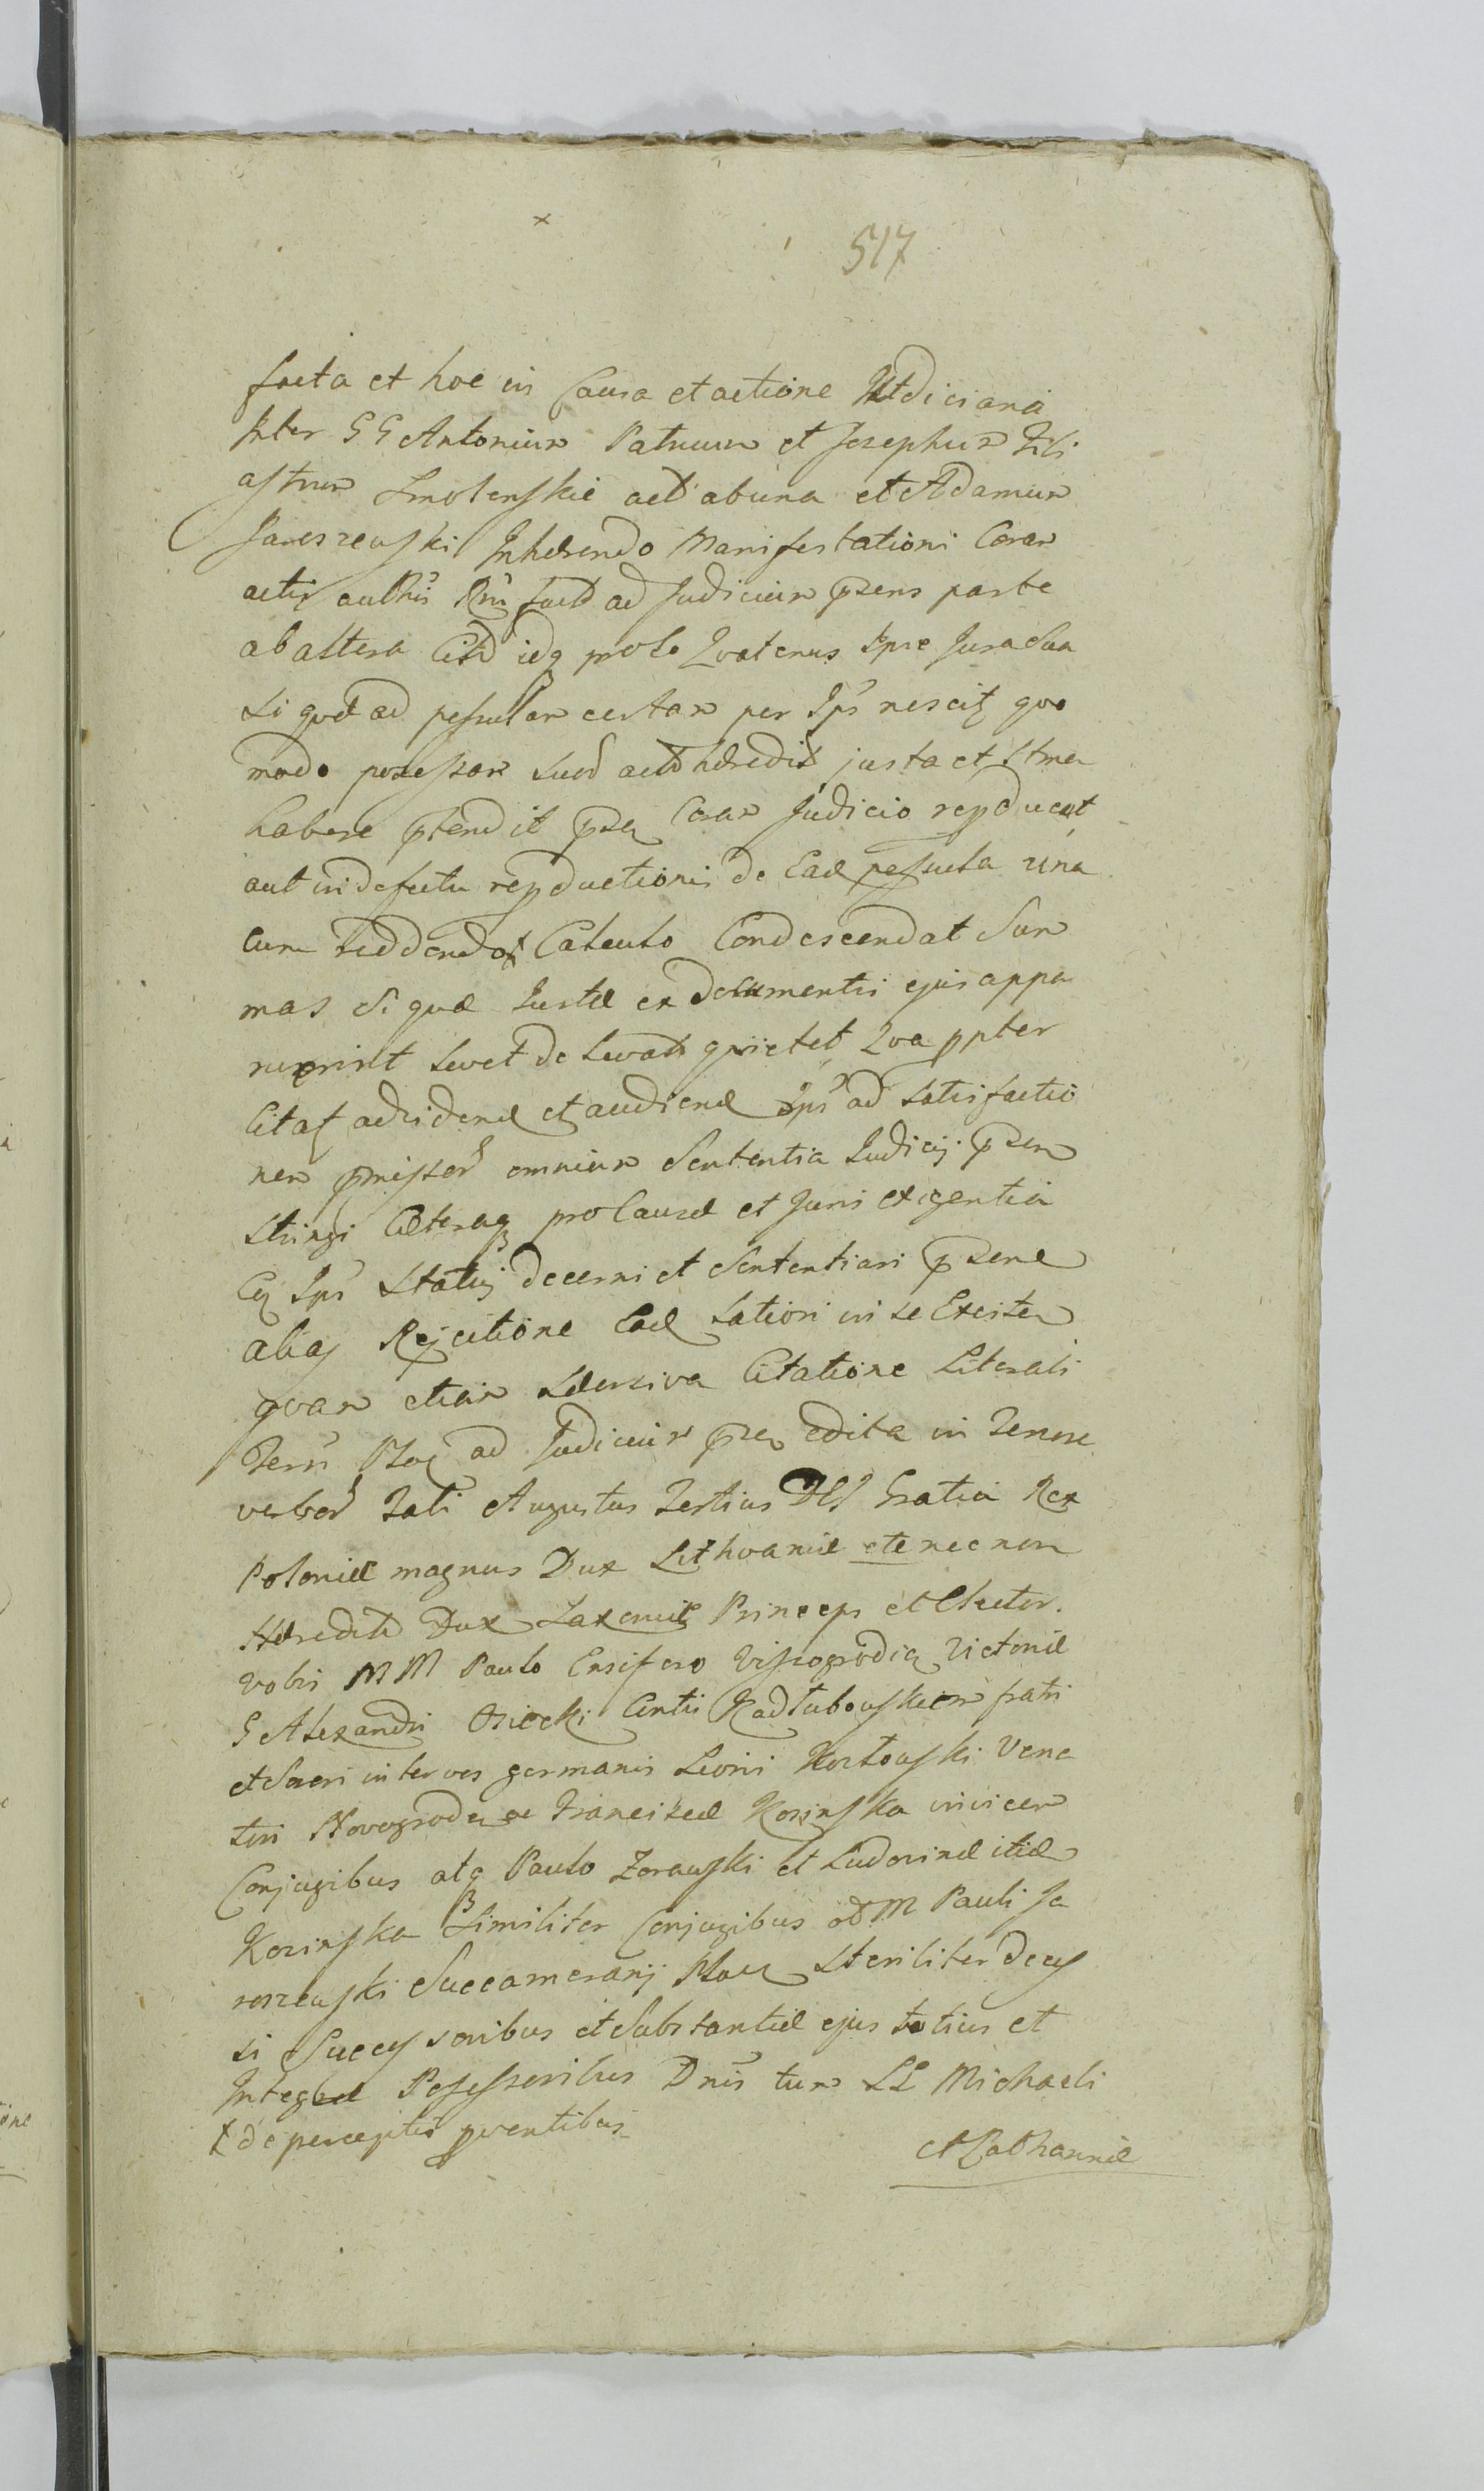 517
facta et hoc in Causa et actione
Inter GG Antonium Patruum et Josephum Fili
astrum Smolenskie act ab una et Adamum
Jaroszewski Inhærendo Manifestationi Coram
actis fact ad Judicium pzens parte
ab altera Citt idq Quatenus Ipse Jura Sua
Si quæ ad certam per Ips nescit quo
modo possessam Suod act hæredit justa et
habere ptendit pza Coram Judicio repducat
aut in defectu repductionis de Ead una
cum reddendo x Calculo Condescendat Sum
mas Si quæ Justæ ex documentis ejus appa
ruerint levet de levatis quietet Qua ppter
Citat ad vidend et audiend Ips ad satisfactio
nem pmissor omnium Sententia Judicij pzen
stringi Cæteraq pro Causæ et Juris exigentia
Ips Statui decerni et Sententiari pzene
alias Rejectione Ead lationi in se
quam etiam Citatione Literali
Terr Ploc ad Judicium pzen edita in Tenore
verbor Tali Augustus Tertius DEI Gratia Rex
Poloniæ magnus Dux Lithvaniæ etc nec non
Hæredit Dux Saxoniæ Princeps et Elector.
Vobis MM Paulo Ensifero Vissogrodien Victoriæ
G Alexandri Osiecki Conti Kadłubowskiem fratri
et Sorori inter vos germanis Leoni Kozłowski Vena
tori Novogroden ac Franciscæ Kosinska invicem
Conjugibus atq Paulo Zorawski et Ludovinæ itid
Kosinska Similiter Conjugibus od M Pauli Ja
roszewski Succamerarij Ploc Steriliter decess
si Successoribus et Substantiæ ejus totius et
Integræ Possessoribus Dnis tum LL Michaeli
x de perceptis pventibus
et Catharinæ